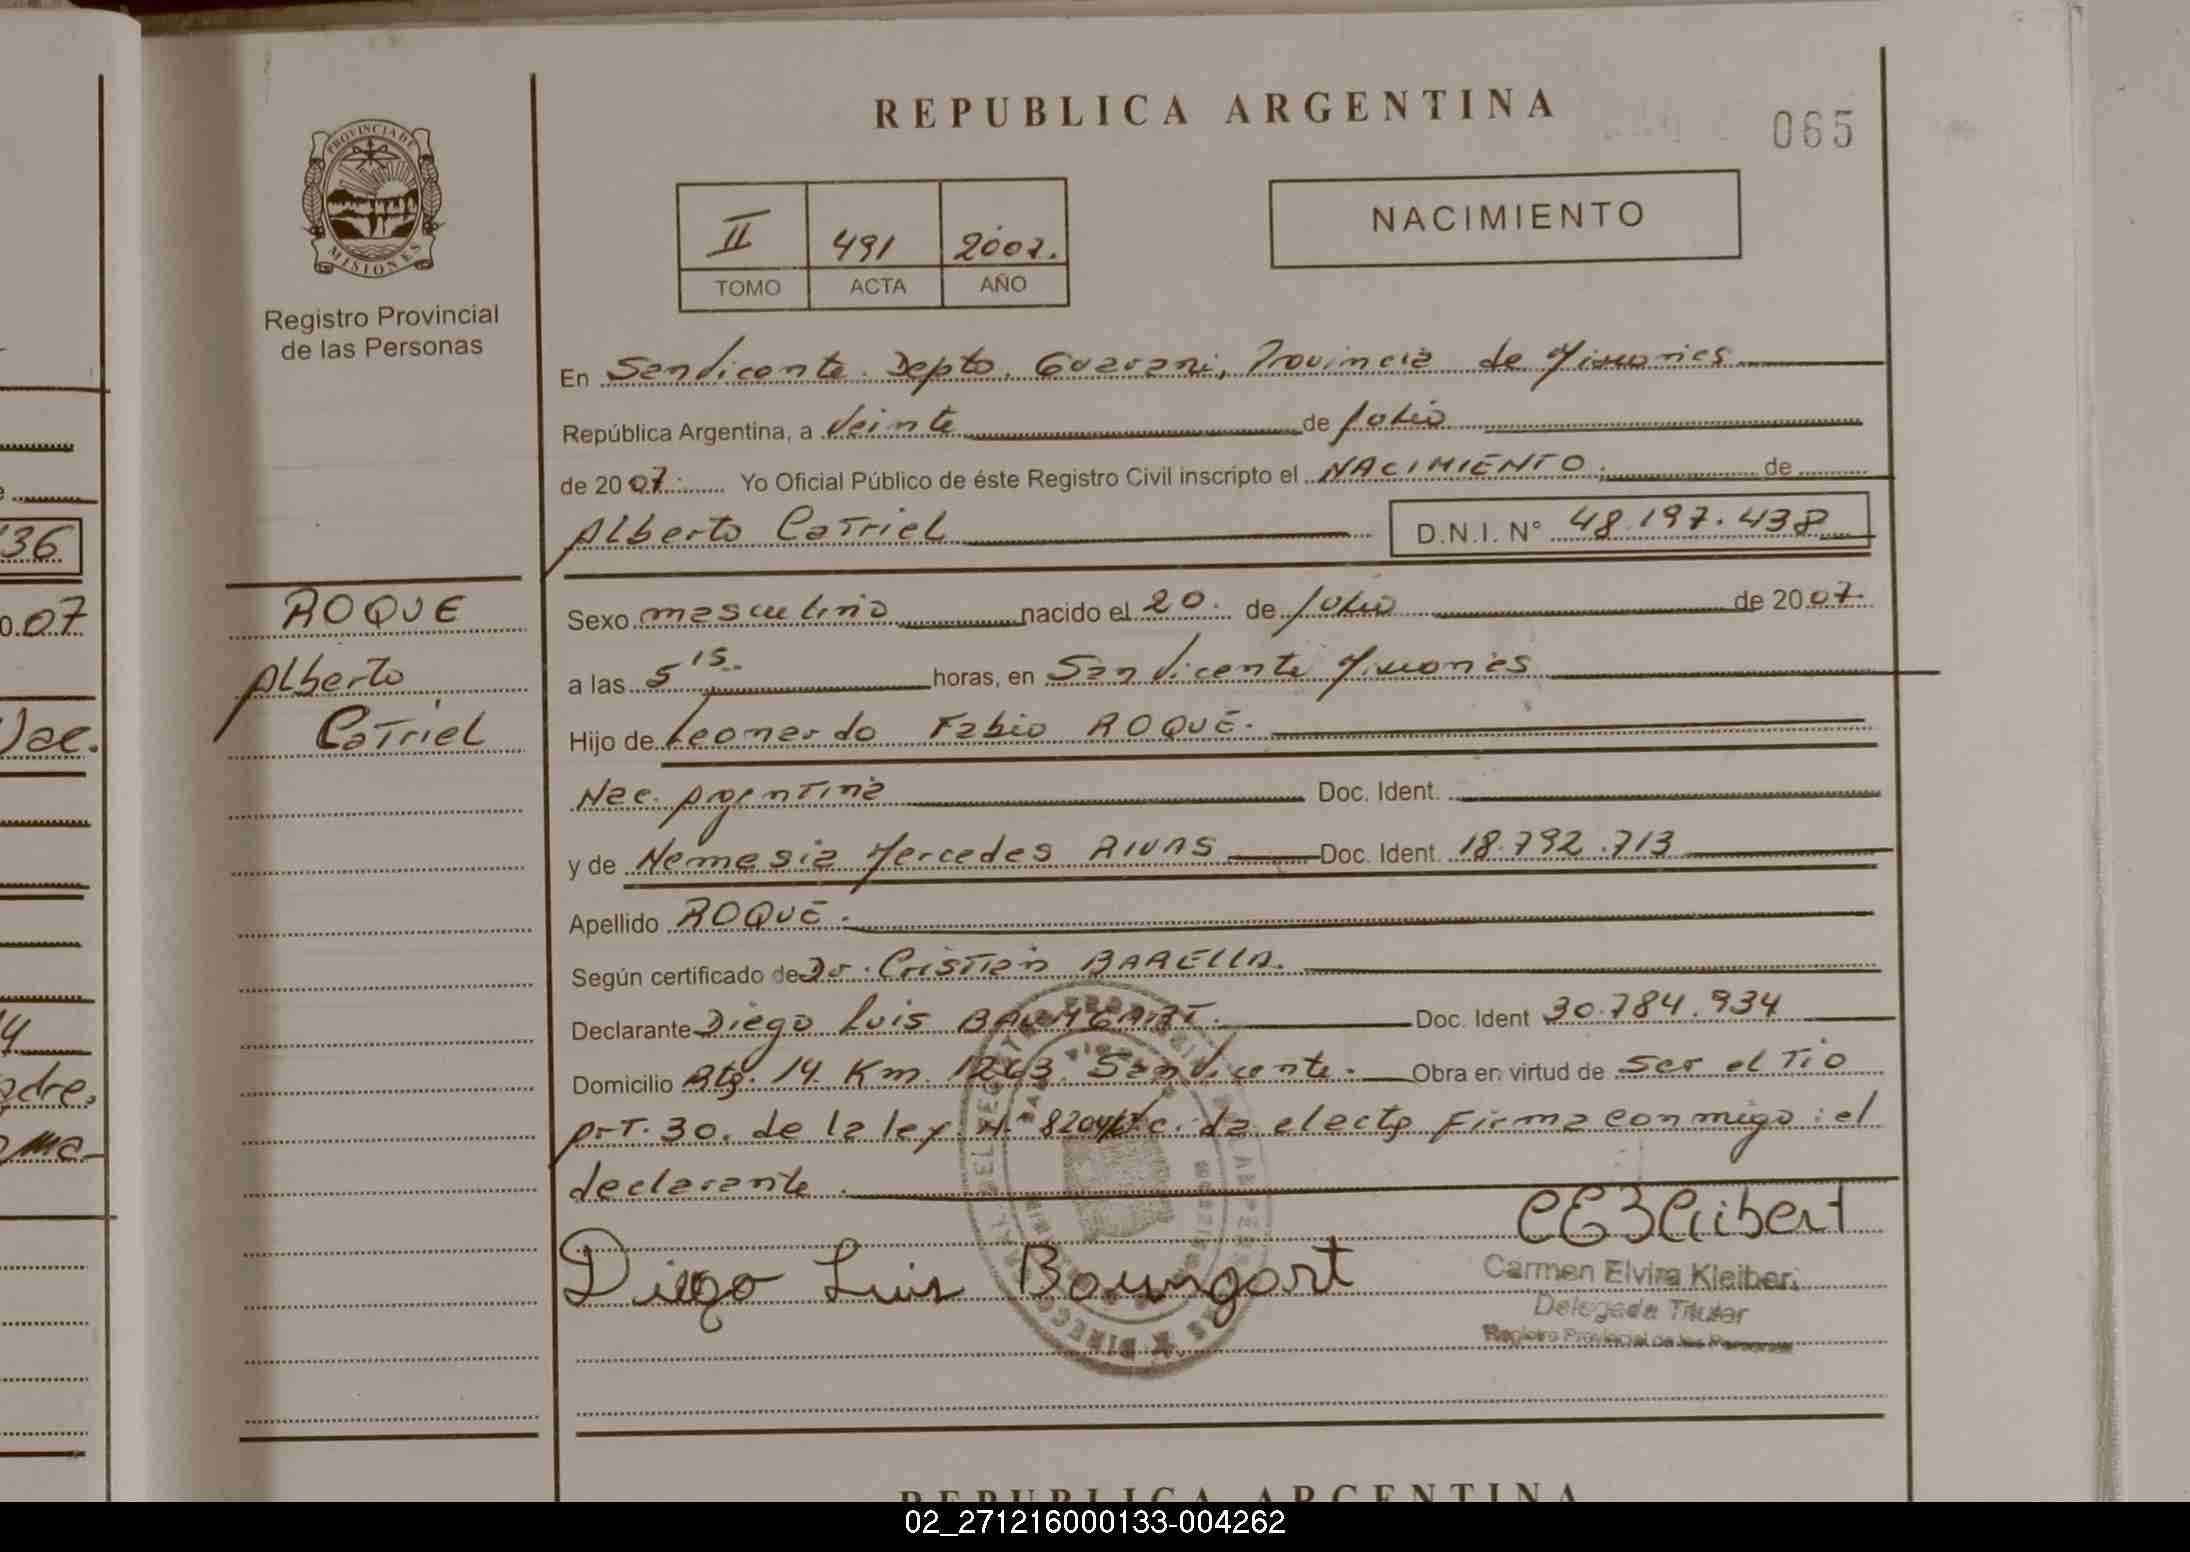 REPUBLICA ARGENTINA
065
PROVINCIA DE
MISIONES
Registro Provincial
de las Personas
II 491 2007.
TOMO ACTA AÑO
NACIMIENTO
En San Vicente. Depto. Guarani, Provincia de Misiones
República Argentina, a Veinte de Julio
de 2007. Yo Oficial Público de éste Registro Civil inscripto el NACIMIENTO. de
Alberto Catriel D.N.I. N° 48.197.438
36
007
Vac.
4
adre.
ROQUE
Alberto
Catriel
Sexo masculino nacido el 20. de Julio de 2007.
a las 5 15. horas, en San Vicente Misiones
Hijo de Leonardo Fabio ROQUE.
Nac. Argentina Doc. Ident.
y de Nemesia Mercedes RIVAS Doc. Ident. 18.792.713
Apellido ROQUE.
Según certificado de Dr. Cristian BARELLA.
Declarante Diego Luis BAUMGART. Doc. Ident 30.784.934
Domicilio Rta. 14. Km. 1263. San Vicente. Obra en virtud de Ser el Tio
Art. 30. de la ley N° electa Firma conmigo: el
declarante.
Diego Luis Boumgart
Carmen Elvira Kleiber
Delegada Titular
Registro Provincial de las Personas
REPUBLICA ARGENTINA
02_271216000133-004262